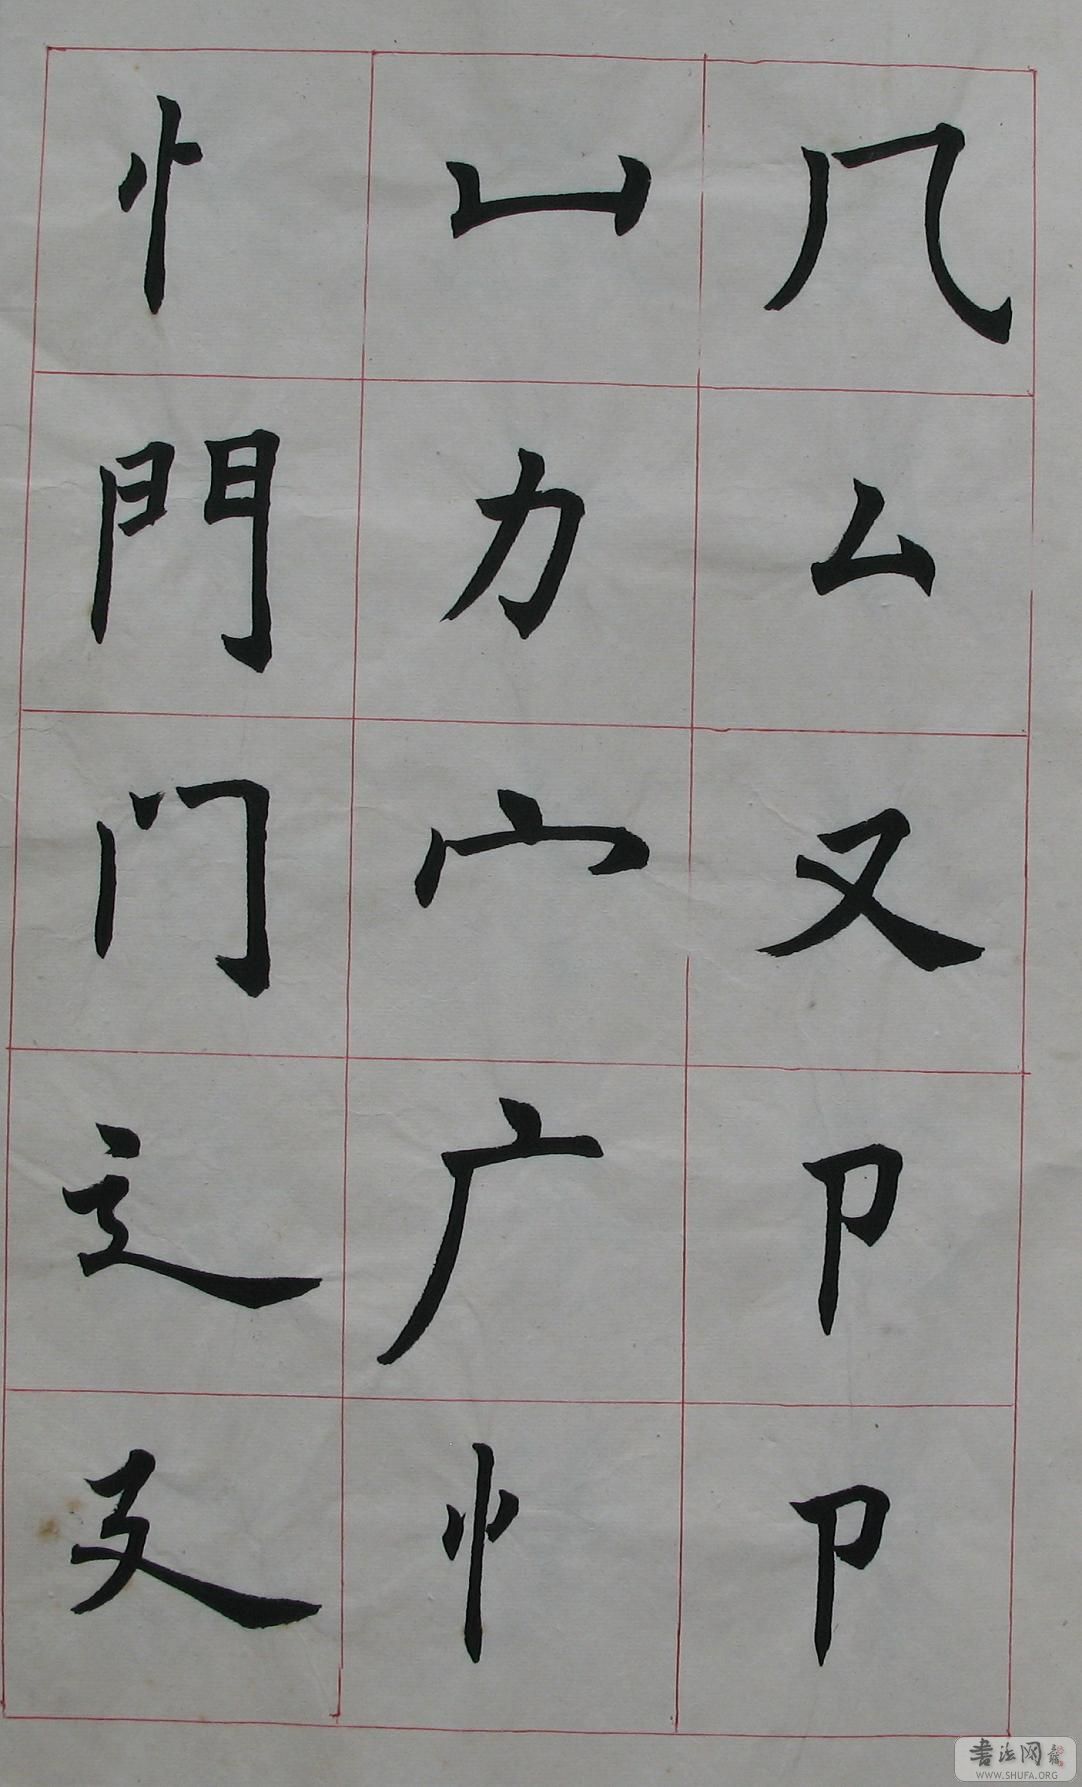 几厶又卩卩
凵力宀广忄
忄門门辶廴
書法网
WWW.SHUFA.ORG